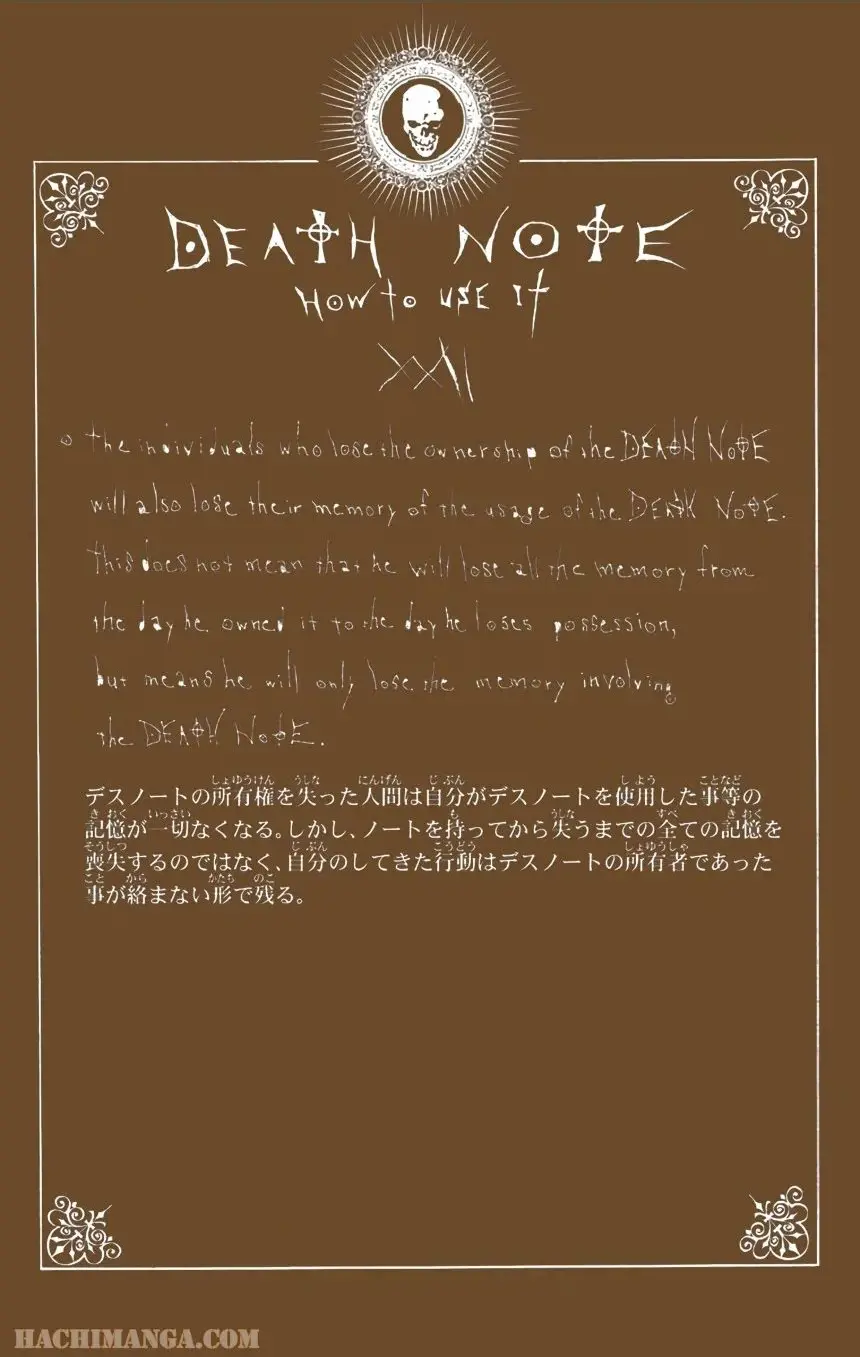 DEATH NOTE
HOW TO USE IT
XXII
○ the individuals who lose the ownership of the DEATH NOTE
will also lose their memory of the usage of the DEATH NOTE.
This does not mean that he will lose all the memory from
the day he owned it to the day he loses possession,
but means he will only lose the memory involving
the DEATH NOTE.
デスノートの所有権を失った人間は自分がデスノートを使用した事等の
記憶が一切なくなる。しかし、ノートを持ってから失うまでの全ての記憶を
喪失するのではなく、自分のしてきた行動はデスノートの所有者であった
事が絡まない形で残る。
HACHIMANGA.COM